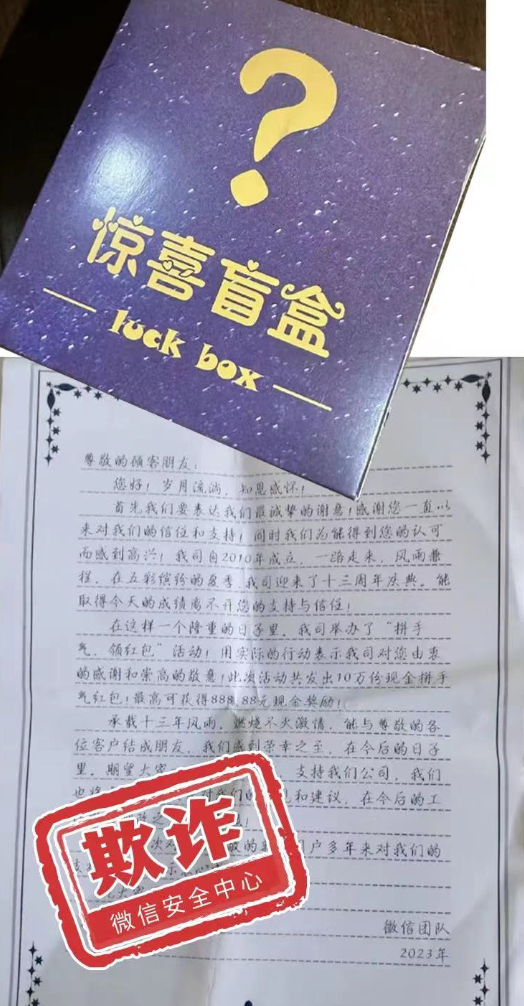 ?
惊喜盲盒
luck box
尊敬的顾客朋友：
您好！岁月流淌，知恩感怀！
首先我们要表达我们最诚挚的谢意！感谢您一直以
来对我们的信任和支持！同时我们为能得到您的认可
而感到高兴！我司自2010年成立，一路走来，风雨兼
程，在五彩缤纷的夏季，我司迎来了十三周年庆典。能
取得今天的成绩离不开您的支持与信任！
在这样一个隆重的日子里，我司举办了“拼手
气，领红包”活动！用实际的行动表示我司对您由衷
的感谢和崇高的敬意！此次活动共发出10万份现金拼手
气红包！最高可获得888.88元现金奖励！
承载十三年风雨，燃烧不灭激情，能与尊敬的各
位客户结成朋友，我们感到荣幸之至，在今后的日子
里，期望大家 支持我们公司，我们
也将 对我们的 和建议，在今后的工
次对 户多年来对我们的
欺诈
微信安全中心
微信团队
2023年